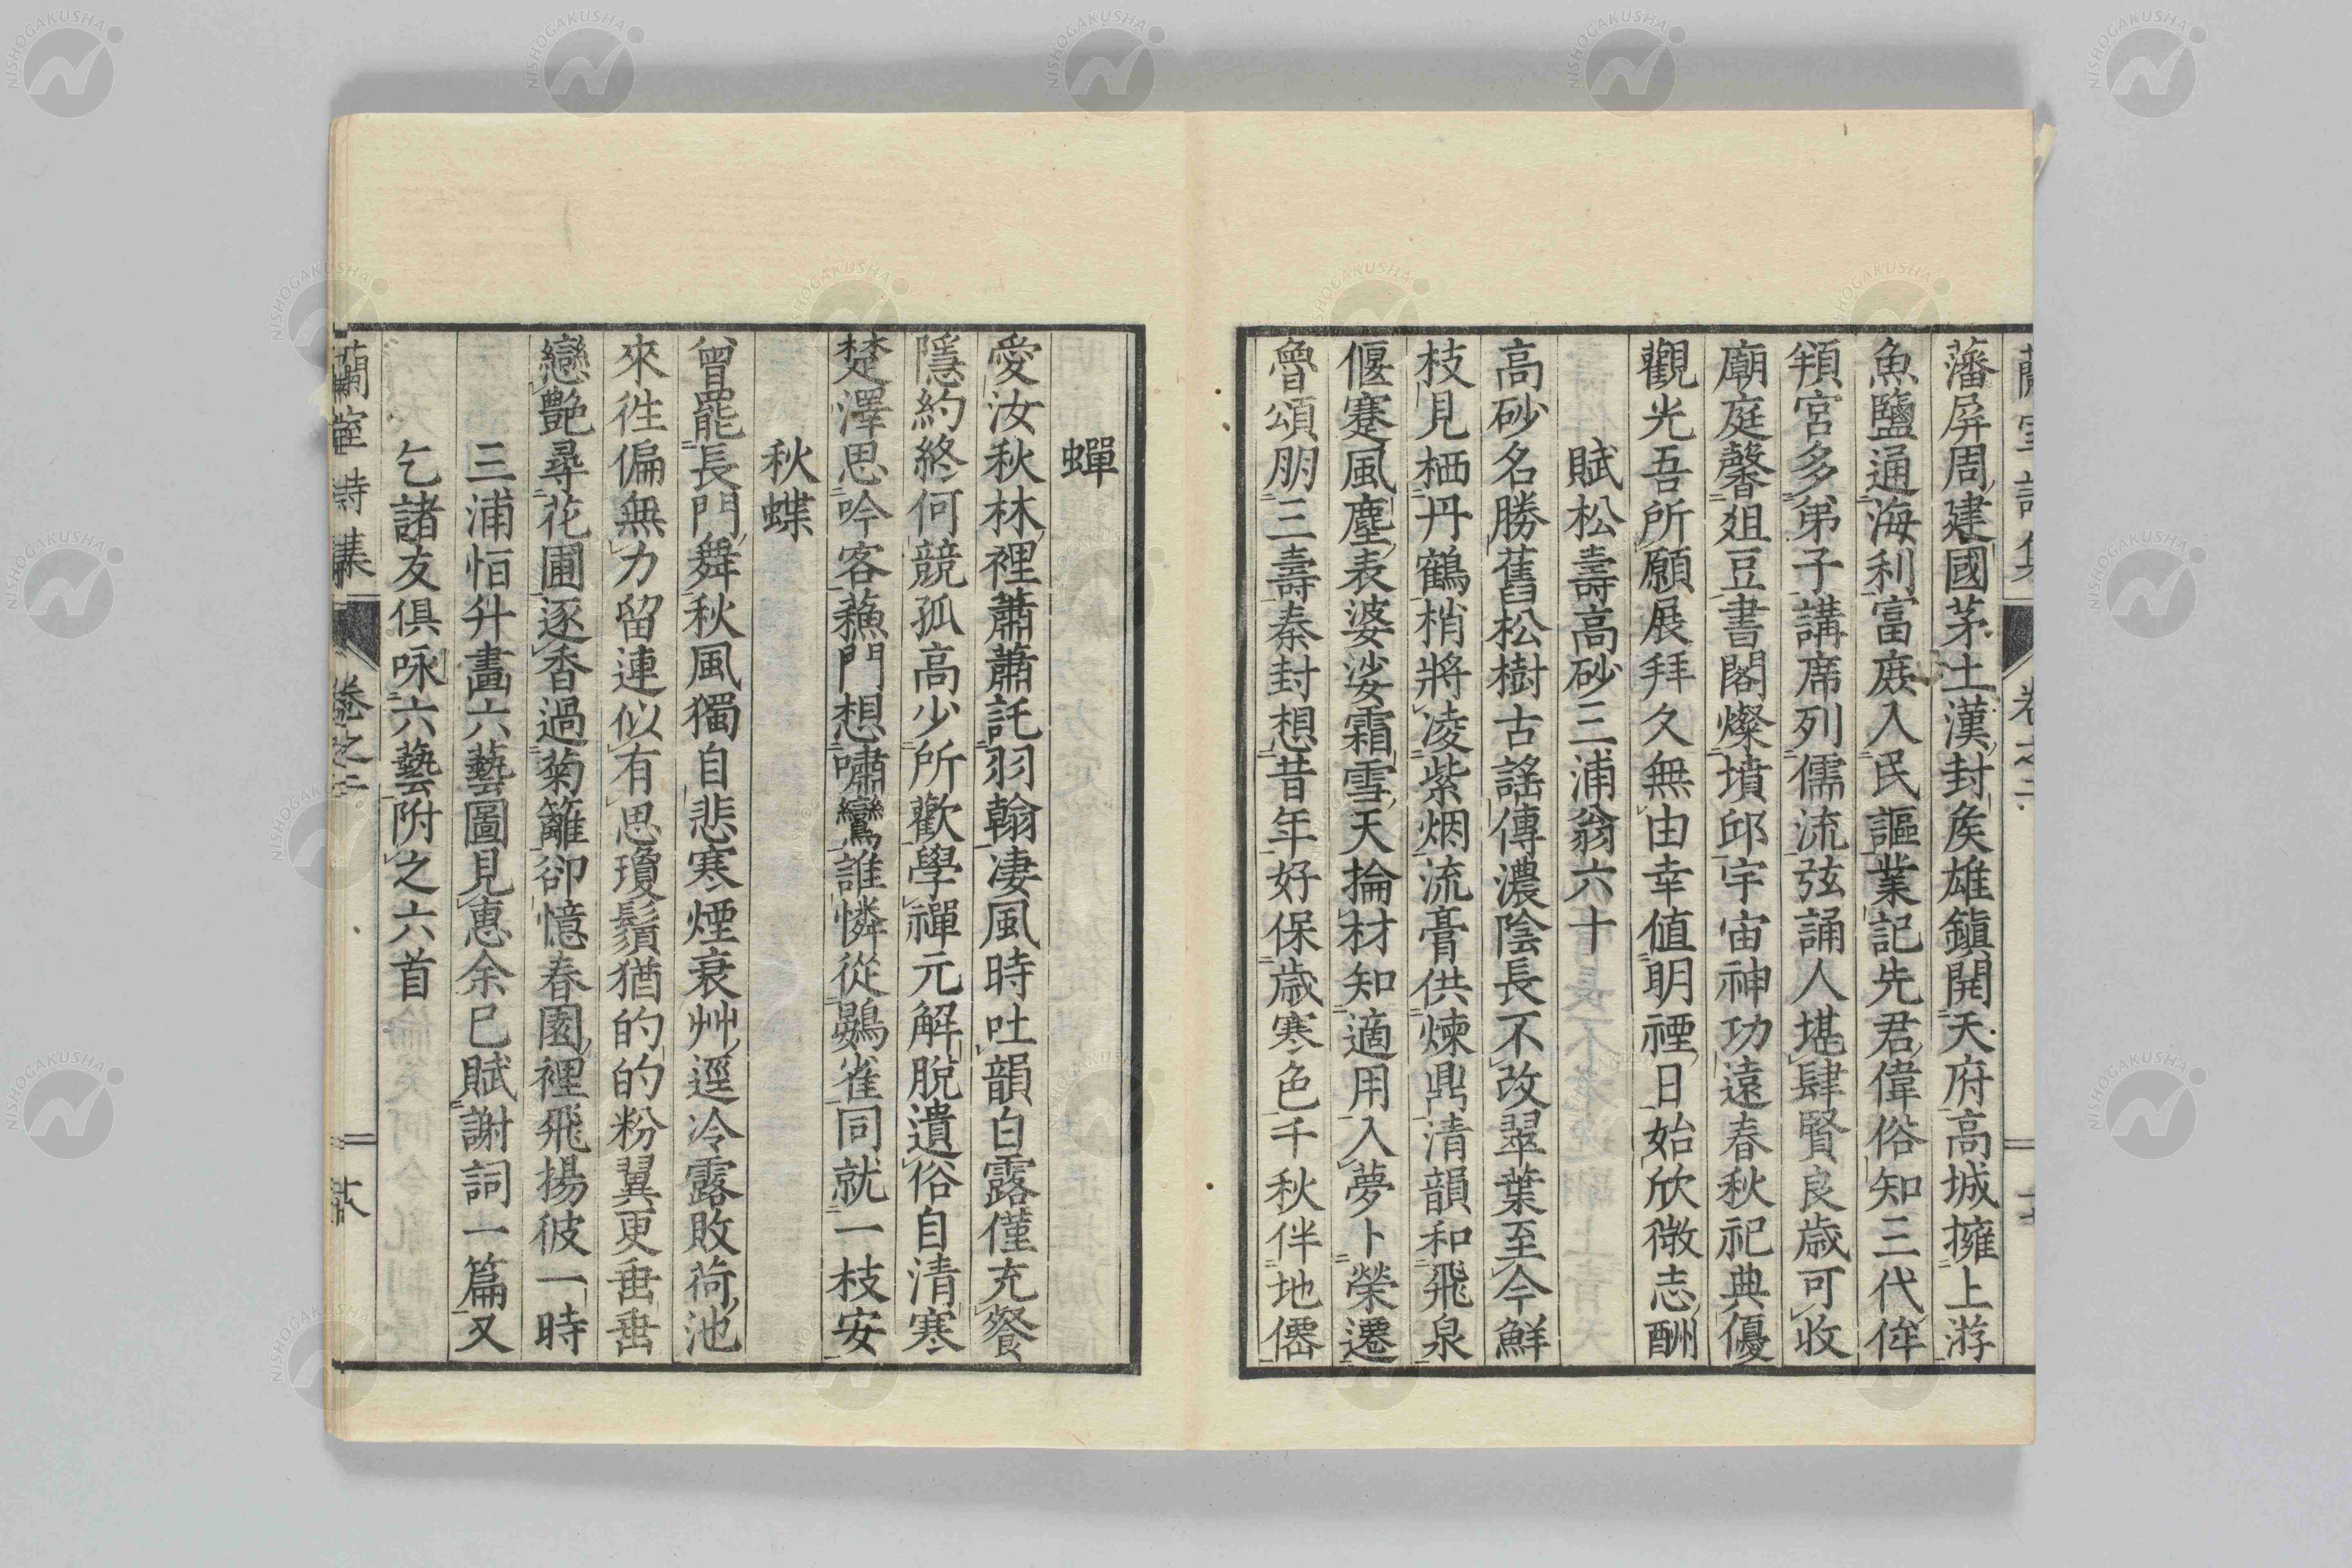 藩屏周建國茅土漢封矦雄鎮開天府高城擁上游
魚鹽通海利富庶入民謳業記先君偉俗知三代侔
頖宮多弟子講席列儒流弦誦人堪肆賢良歲可收
廟庭馨俎豆書閣燦墳邱宇宙神功遠春秋祀典優
觀光吾所願展拜久無由幸値明禋日始欣微志酬
賦松壽高砂三浦翁六十
高砂名勝舊松樹古謠傳濃陰長不改翠葉至今鮮
枝見栖丹鶴梢將凌紫烟流膏供煉鼎清韻和飛泉
偃蹇風塵表婆娑霜雪天掄材知適用入夢卜榮遷
魯頌朋三壽秦封想昔年好保歲寒色千秋伴地僊
蟬
愛汝秋林裡蕭蕭託羽翰凄風時吐韻白露僅充餐
隱約終何競孤高少所歡學禪元解脫遺俗自清寒
楚澤思吟客蘓門想嘯鸞誰憐從鷃雀同就一枝安
秋蝶
曾罷長門舞秋風獨自悲寒煙衰艸逕冷露敗荷池
來徃偏無力留連似有思瓊鬚猶的的粉翼更垂垂
戀艶尋花圃逐香過菊籬卻憶春園裡飛揚彼一時
三浦恒升畫六藝圖見惠余已賦謝詞一篇又
乞諸友俱咏六藝附之六首
蘭室詩集 卷之二
NISHOGAKUSHA